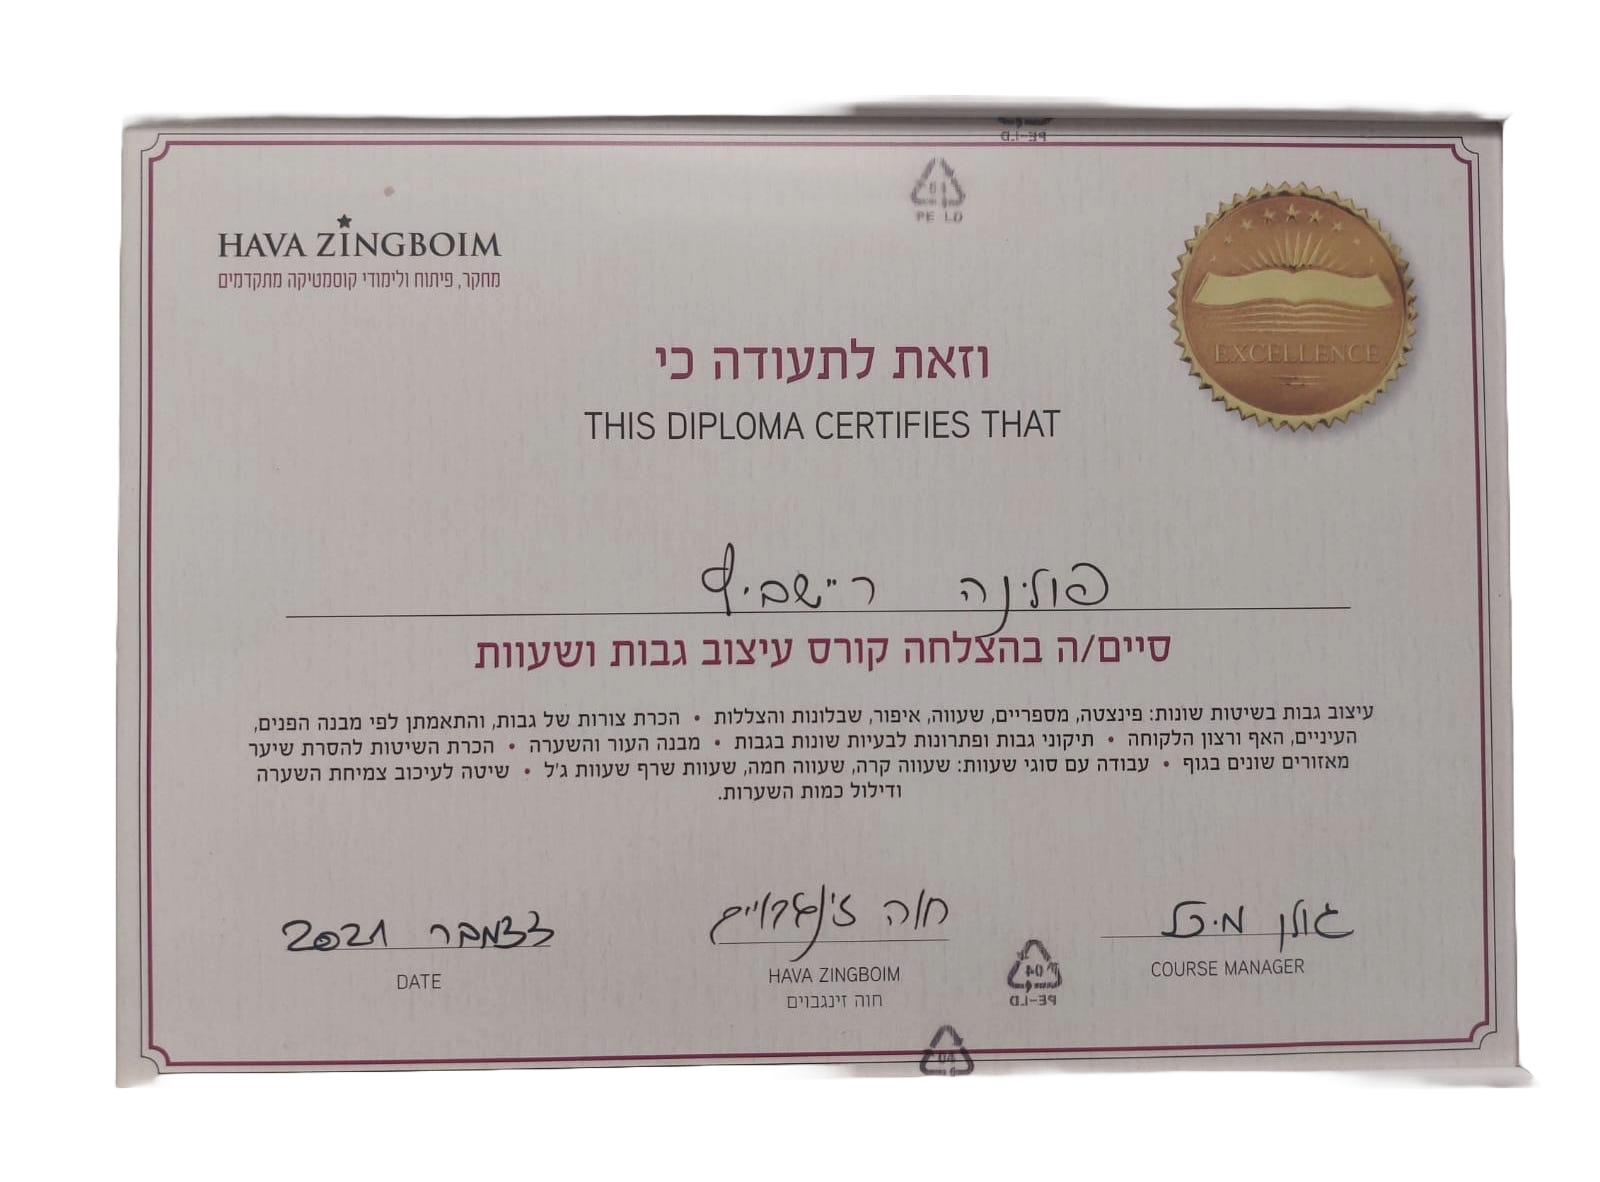 HAVA ZINGBOIM
מחקר, פיתוח ולימודי קוסמטיקה מתקדמים
EXCELLENCE
וזאת לתעודה כי
THIS DIPLOMA CERTIFIES THAT
פולינה ריישביץ
סיים/ה בהצלחה קורס עיצוב גבות ושעוות
עיצוב גבות בשיטות שונות: פינצטה, מספריים, שעווה, איפור, שבלונות והצללות • הכרת צורות של גבות, והתאמתן לפי מבנה הפנים,
העיניים, האף ורצון הלקוחה • תיקוני גבות ופתרונות לבעיות שונות בגבות • מבנה העור והשערה • הכרת השיטות להסרת שיער
מאזורים שונים בגוף • עבודה עם סוגי שעוות: שעווה קרה, שעווה חמה, שעוות שרף שעוות ג'ל • שיטה לעיכוב צמיחת השערה
ודילול כמות השערות.
גולן מיכל
COURSE MANAGER
חוה זינגבוים
HAVA ZINGBOIM
חוה זינגבוים
דצמבר 2021
DATE
04
PE-LD
PE LD
04
PE-LD
04